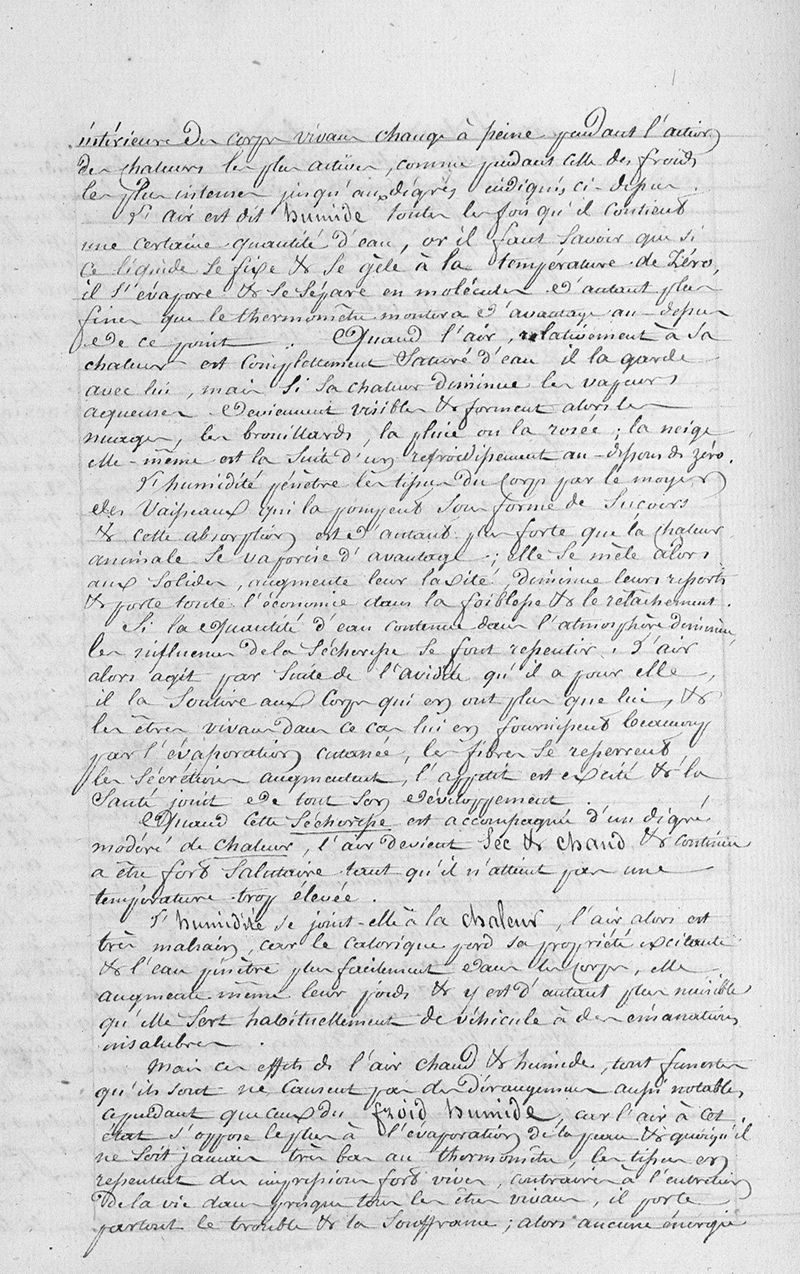 intérieure des corps vivans change à peine pendant l'action
des chaleurs les plus actives, comme pendant celle des froids
les plus intenses jusqu'aux dégrés indiqués ci-dessus.
L'air est dit humide toutes les fois qu'il contient
une certaine quantité d'eau, or il faut savoir que si
ce liquide se fixe & se gèle à la température de Zéro,
il s'évapore & se sépare en molécules d'autant plus
fines que le thermomètre montera d'avantage au-dessus
de ce point. Quand l'air, relativement à sa
chaleur est complettement saturé d'eau il la garde
avec lui, mais si sa chaleur diminue les vapeurs
aqueuses deviennent visibles & forment alors les
nuages, les brouillards, la pluie ou la rosée; la neige
elle-même est la suite d'un refroidissement au-dessous de zéro.
L'humidité pénètre les tissus du corps par le moyen
des vaisseaux qui la pompent sous forme de
& cette absorption est d'autant plus forte que la chaleur
animale se vaporise d'avantage; elle se mêle alors
aux solides, augmente leur laxité diminue leurs ressorts
& porte toute l'économie dans la foiblesse & le relachement.
Si la quantité d'eau contenue dans l'atmosphère diminue,
les influences de la sécheresse se font ressentir. L'air
alors agit par suite de l'avidité qu'il a pour elle,
il la soutire aux corps qui en ont plus que lui, &
les êtres vivans dans ce cas lui en fournissent beaucoup
par l'évaporation cutanée, les fibres se resserrent
les sécrétions augmentent, l'appétit est excité & la
santé jouit de tout son développement.
Quand cette sécheresse est accompagnée d'un dégré
modéré de chaleur, l'air devient sec & chaud & continue
a être fort salutaire tant qu'il n'atteint pas une
température trop élevée.
L'humidité se joint-elle à la chaleur, l'air alors est
très malsain, car le calorique perd sa propriété excitante
& l'eau pénètre plus facilement dans les corps, elle
augmente même leur poids & y est d'autant plus nuisible
qu'elle sert habituellement de véhicule à des émanations
insalubres.
Mais ces effets de l'air chaud & humide, tout funestes
qu'ils sont ne causent pas de dérangemens aussi notables
cependant que ceux du froid humide, car l'air à cet
état s'oppose le plus à l'évaporation de la peau & quoiqu'il
ne soit jamais très bas au thermomètre, les tissus en
ressentent des impressions fort vives, contraires à l'entretien
de la vie dans presque tous les êtres vivans, il porte
partout le trouble & la souffrance; alors aucune énergie